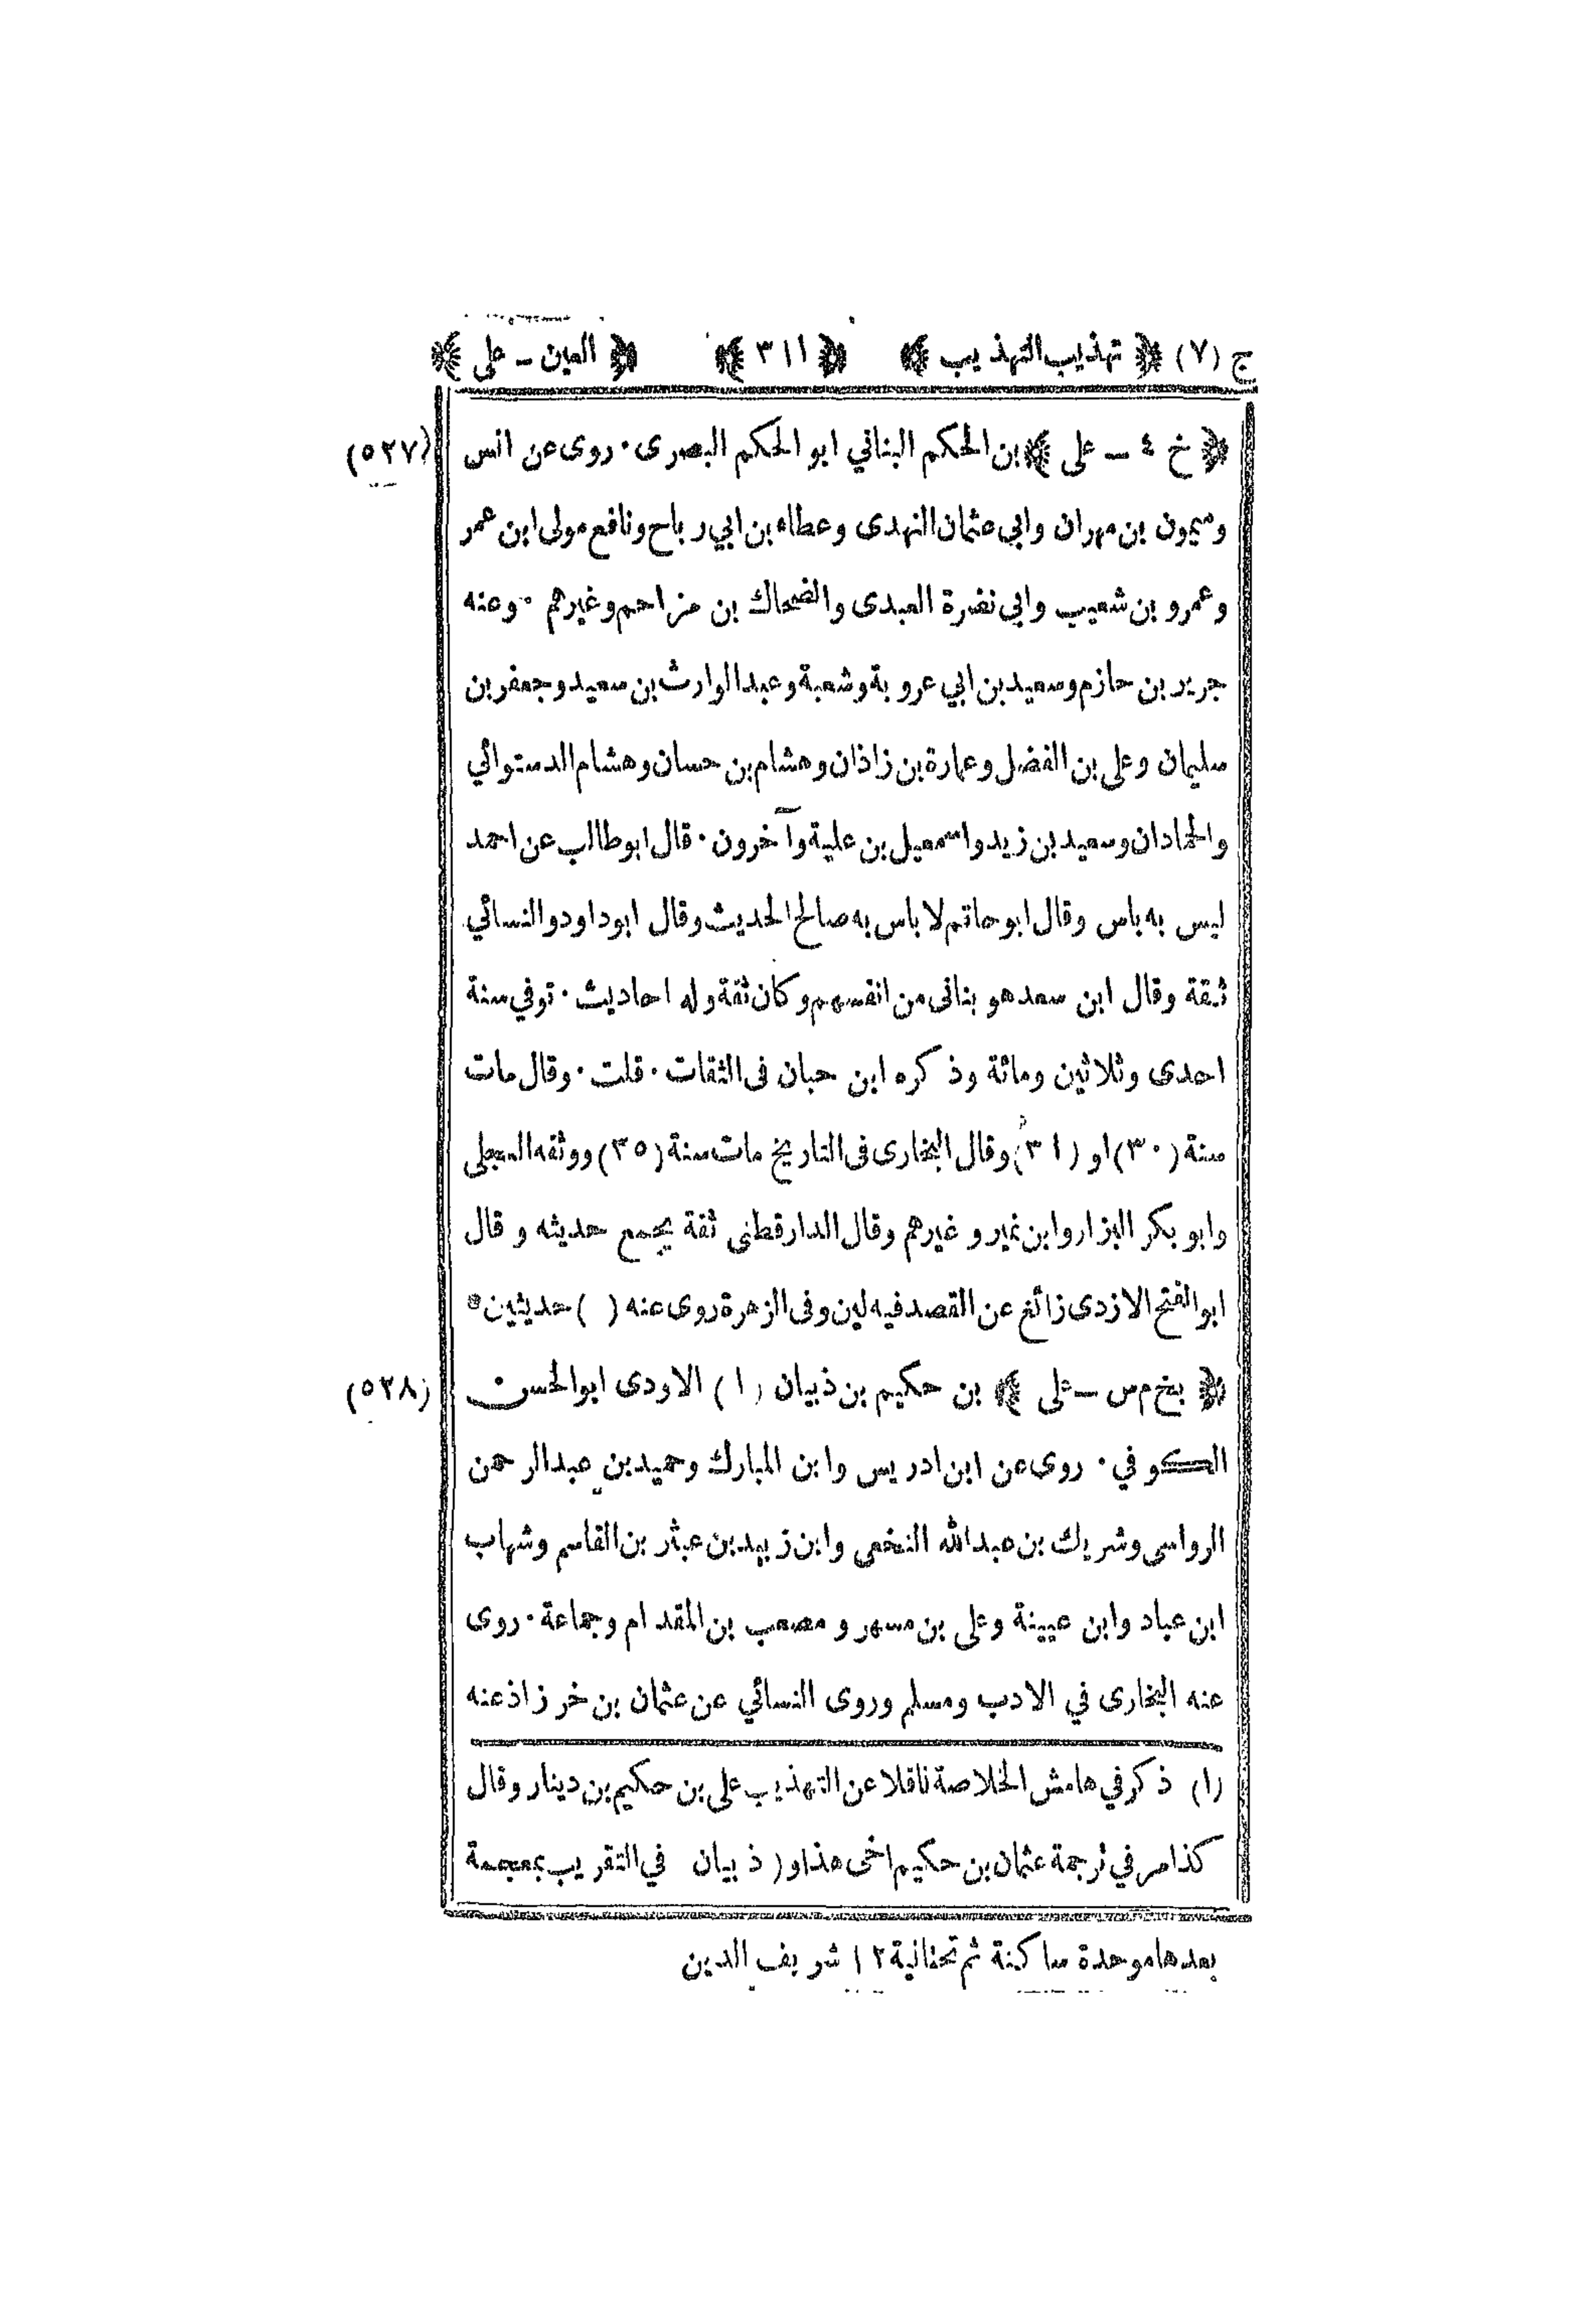 ج (٧) ﴿ تهذيب التهذيب ﴾ ﴿ ٣١١ ﴾ ﴿ العين – على ﴾
﴿ خ ٤ – على ﴾ بن الحكم البناني ابو الحكم البصرى · روى عن انس (٥٢٧)
وميمون بن مهران وابي عثمان النهدى وعطاء بن ابي رباح ونافع مولى ابن عمر
وعمرو بن شعيب وابي نضرة العبدى والضحاك بن مزاحم وغيرهم · وعنه
جرير بن حازم وسعيد بن ابي عروبة وشعبة وعبدالوارث بن سعيد وجعفر بن
سليمان وعلى بن الفضل وعمارة بن زاذان وهشام بن حسان وهشام الدستوائي
والحمادان وسعيد بن زيد واسمعيل بن علية وآخرون · قال ابوطالب عن احمد
ليس به باس وقال ابوحاتم لا باس به صالح الحديث وقال ابوداود والنسائي
ثقة وقال ابن سعد هو بنانى من انفسهم وكان ثقة وله احاديث · توفي سنة
احدى وثلاثين ومائة وذكره ابن حبان فى الثقات · قلت · وقال مات
سنة (٣٠) او (٣١) وقال البخارى فى التاريخ مات سنة (٣٥) ووثقه العجلى
وابو بكر البزار وابن نمير وغيرهم وقال الدارقطنى ثقة يجمع حديثه وقال
ابوالفتح الازدى زائغ عن القصد فيه لين وفى الزهرة روى عنه ( ) حديثين *
﴿ بخ م س – على ﴾ بن حكيم بن ذبيان (١) الاودى ابوالحسن (٥٢٨)
الكوفي · روى عن ابن ادريس وابن المبارك وحميد بن عبدالرحمن
الرواسى وشريك بن عبدالله النخعى وابن زبيد بن عبثر بن القاسم وشهاب
ابن عباد وابن عيينة وعلى بن مسهر ومصعب بن المقدام وجماعة · روى
عنه البخارى في الادب ومسلم وروى النسائي عن عثمان بن خرزاذ عنه
(١) ذكر في هامش الخلاصة ناقلا عن التهذيب على بن حكيم بن دينار وقال
كذا مر في ترجمة عثمان بن حكيم اخى هذا و(ذبيان في التقريب بمعجمة
بعدها موحدة ساكنة ثم تحتانية ١٢ شريف الدين